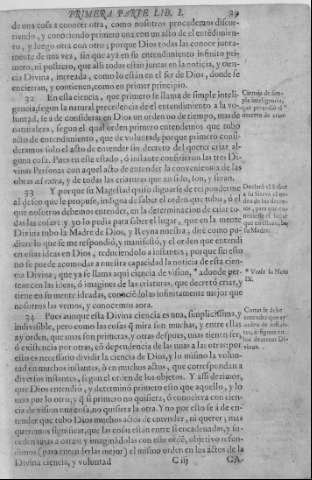 PRIMERA PARTE LIB. I. 29
de una cosa à conocer otra, como nosotros procedemos discur-
riendo, y conociendo primero una con un acto de el entendimien-
to, y luego otra con otro; porque Dios todas las conoce junta-
mente de una vez, sin que aya en su entendimiento infinito pri-
mero, ni postrero, que alli todas estàn juntas en la noticia, y cien-
cia Divina, increada, como lo estàn en el ser de Dios, donde se
encierran, y contienen, como en primer principio.
32. En esta ciencia, que primero se llama de simple inteli-
gencia, segun la natural precedencia de el entendimiento à la vo-
luntad, se à de considerar en Dios un orden no de tiempo, mas de
naturaleza, segun el qual orden primero entendemos que tubo
acto de entendimiento, que de voluntad; porque primero consi-
deramos solo el acto de entender sin decreto del querer criar al-
guna cosa. Pues en este estado, ò instante confirieron las tres Di-
vinas Personas con aquel acto de entender la conveniencia de las
obras ad extra, y de todas las criaturas que an sido, son, y seran.
33. Y porque su Magestad quiso dignarse de responderme
al deseo que le propuse, indigna de saber el orden que tubo, ò el
que nosotros debemos entender, en la determinacion de criar to-
das las cosas: y yo lo pedia para saber el lugar, que en la mente
Divina tubo la Madre de Dios, y Reyna nuestra, diré como pu-
diere lo que se me respondió, y manifestó, y el orden que entendi
en estas ideas en Dios, reduciendolo à instantes; porque sin esto
no se puede acomodar à nuestra capacidad la noticia de esta cien-
cia Divina; que ya se llama aqui ciencia de vision, * adonde per-
tenecen las ideas, ò imagines de las criaturas, que decretó criar, y
tiene en su mente ideadas, conociendolas infinitamente mejor que
nosotros las vemos, y conocemos aora.
34. Pues aunque esta Divina ciencia es una, simplicissima, y
indivisible, pero como las cosas q̃ mira son muchas, y entre ellas
ay orden, que unas son primeras, y otras despues, unas tienen ser,
ò existencia por otras, cõ dependencia de las unas à las otras; por
esso es necessario dividir la ciencia de Dios, y lo mismo la volun-
tad en muchos instantes, ò en muchos actos, que correspondan à
diversos instantes, segun el orden de los objetos. Y assi decimos,
que Dios entendiò, y determinò primero esto que aquello, y lo
uno por lo otro; y q̃ si primero no quisiera, ò conociera con cien-
cia de vision una cosa, no quisiera la otra. Y no por esto se à de en-
tender que tubo Dios muchos actos de entender, ni querer; mas
queremos significar, que las cosas estàn entre si encadenadas, y su-
ceden unas à otras: y imaginandolas con este ordẽ, objetivo refun-
dimos (para entenderlas mejor) el mismo orden en los actos de la
Divina ciencia, y voluntad
C iij CA-
Ciencia de sim-
ple inteligencia,
Declaró el Señor
* Vease la Nota
IX.